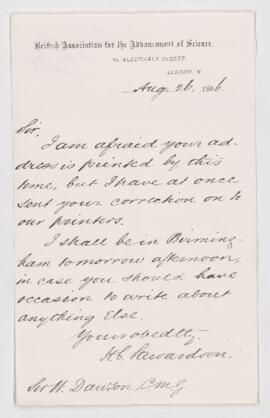 British Association for the Advancement of Science.
22, ALBEMARLE STREET,
LONDON, W.
Aug. 26. 1886.
Sir,
I am afraid your ad-
dress is printed by this
time, but I have at once
sent your correction on to
our printers.
I shall be in Birming-
ham tomorrow afternoon,
in case you should have
occasion to write about
anything else.
Yours obedtly.
H. C. Stewardson.
Sir W. Dawson, C.M.G.